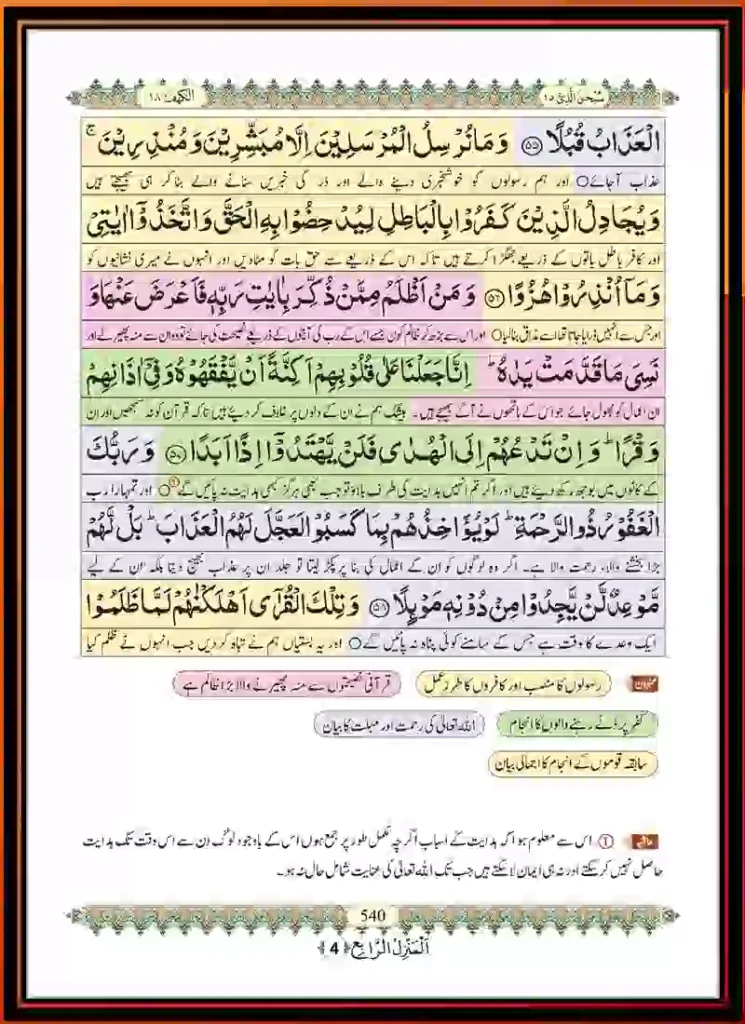 سبحن الذی ۱۵
الکھف ۱۸
الْعَذَابُ قُبُلًا ﴿۵۵﴾ وَمَا نُرْسِلُ الْمُرْسَلِیْنَ اِلَّا مُبَشِّرِیْنَ وَمُنْذِرِیْنَ ۚ
عذاب آجائے○ اور ہم رسولوں کو خوشخبری دینے والے اور ڈر کی خبریں سنانے والے بناکر ہی بھیجتے ہیں
وَیُجَادِلُ الَّذِیْنَ کَفَرُوْا بِالْبَاطِلِ لِیُدْحِضُوْا بِہِ الْحَقَّ وَاتَّخَذُوْۤا اٰیٰتِیْ
اور کافر باطل باتوں کے ذریعے جھگڑا کرتے ہیں تاکہ اس کے ذریعے سے حق بات کو مٹادیں اور انہوں نے میری نشانیوں کو
وَمَاۤ اُنْذِرُوْا ھُزُوًا ﴿۵۶﴾ وَمَنْ اَظْلَمُ مِمَّنْ ذُکِّرَ بِاٰیٰتِ رَبِّہٖ فَاَعْرَضَ عَنْھَا وَ
اور جس سے انہیں ڈرایا جاتا تھا اسے مذاق بنالیا○ اور اس سے بڑھ کر ظالم کون جسے اس کے رب کی آیتوں کے ذریعے نصیحت کی جائے تو وہ ان سے منہ پھیرلے اور
نَسِیَ مَا قَدَّمَتْ یَدٰہُ ؕ اِنَّا جَعَلْنَا عَلٰی قُلُوْبِھِمْ اَکِنَّۃً اَنْ یَّفْقَھُوْہُ وَفِیْۤ اٰذَانِھِمْ
ان اعمال کو بھول جائے جو اس کے ہاتھوں نے آگے بھیجے ہیں۔ بیشک ہم نے ان کے دلوں پر غلاف کردیئے ہیں تاکہ قرآن کو نہ سمجھیں اور ان
وَقْرًا ؕ وَاِنْ تَدْعُھُمْ اِلَی الْھُدٰی فَلَنْ یَّھْتَدُوْۤا اِذًا اَبَدًا ﴿۵۷﴾ وَرَبُّکَ
کے کانوں میں بوجھ رکھ دیئے ہیں اور اگر تم انہیں ہدایت کی طرف بلاؤ تو جب بھی ہرگز کبھی ہدایت نہ پائیں گے①○ اور تمہارا رب
الْغَفُوْرُ ذُو الرَّحْمَۃِ ؕ لَوْ یُؤَاخِذُھُمْ بِمَا کَسَبُوْا لَعَجَّلَ لَھُمُ الْعَذَابَ ؕ بَلْ لَّھُمْ
بڑا بخشنے والا، رحمت والا ہے۔ اگر وہ لوگوں کو ان کے اعمال کی بنا پر پکڑ لیتا تو جلد ان پر عذاب بھیج دیتا بلکہ ان کے لیے
مَّوْعِدٌ لَّنْ یَّجِدُوْا مِنْ دُوْنِہٖ مَوْئِلًا ﴿۵۸﴾ وَتِلْکَ الْقُرٰۤی اَھْلَکْنٰھُمْ لَمَّا ظَلَمُوْا
ایک وعدے کا وقت ہے جس کے سامنے کوئی پناہ نہ پائیں گے○ اور یہ بستیاں ہم نے تباہ کردیں جب انہوں نے ظلم کیا
عنوان رسولوں کا منصب اور کافروں کا طرز عمل قرآنی نصیحتوں سے منہ پھیرنے والا بڑا ظالم ہے
کفر پر ڈٹے رہنے والوں کا انجام اللہ تعالٰی کی رحمت اور مہلت کا بیان
سابقہ قوموں کے انجام کا اجمالی بیان
① اس سے معلوم ہوا کہ ہدایت کے اسباب اگرچہ مکمل طور پر جمع ہوں اس کے باوجود لوگ ان سے اس وقت تک ہدایت
حاصل نہیں کرسکتے اور نہ ہی ایمان لاسکتے ہیں جب تک اللہ تعالٰی کی عنایت شامل حال نہ ہو۔
540
اَلْمَنْزِلُ الرَّابِع ﴿4﴾